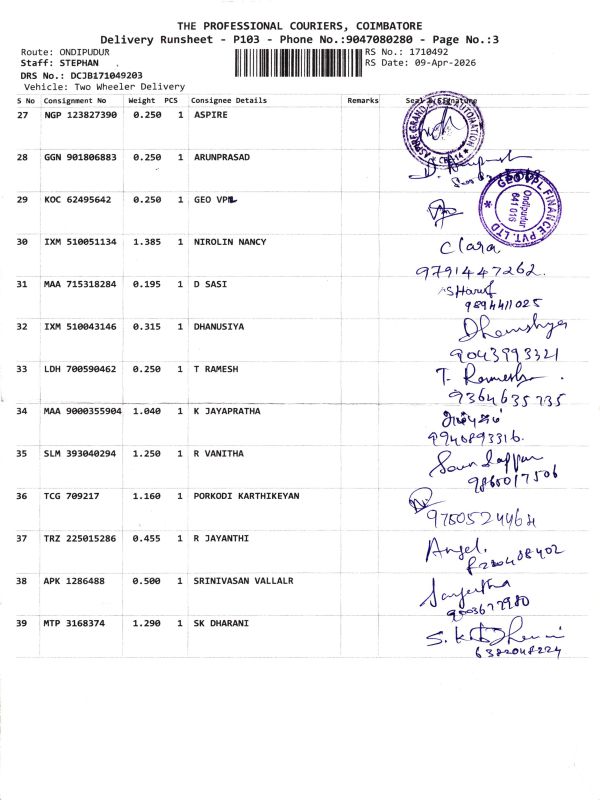 THE PROFESSIONAL COURIERS, COIMBATORE
Delivery Runsheet - P103 - Phone No.:9047080280 - Page No.:3
Route: ONDIPUDUR RS No.: 1710492
Staff: STEPHAN RS Date: 09-Apr-2026
DRS No.: DCJB171049203
Vehicle: Two Wheeler Delivery
S No Consignment No Weight PCS Consignee Details Remarks Seal & Signature
27 NGP 123827390 0.250 1 ASPIRE
28 GGN 901806883 0.250 1 ARUNPRASAD
29 KOC 62495642 0.250 1 GEO VPL
GEO VPL FINANCE PVT. LTD
Ondipudur
641 016
30 IXM 510051134 1.385 1 NIROLIN NANCY Clara
9791447262.
31 MAA 715318284 0.195 1 D SASI
9894411025
32 IXM 510043146 0.315 1 DHANUSIYA Dhanushya
9043993321
33 LDH 700590462 0.250 1 T RAMESH T. Ramesh
9364635735
34 MAA 9000355904 1.040 1 K JAYAPRATHA
9940893316.
35 SLM 393040294 1.250 1 R VANITHA
9865017506
36 TCG 709217 1.160 1 PORKODI KARTHIKEYAN
37 TRZ 225015286 0.455 1 R JAYANTHI Angel.
38 APK 1286488 0.500 1 SRINIVASAN VALLALR Sangeetha
9003677980
39 MTP 3168374 1.290 1 SK DHARANI
6382048224